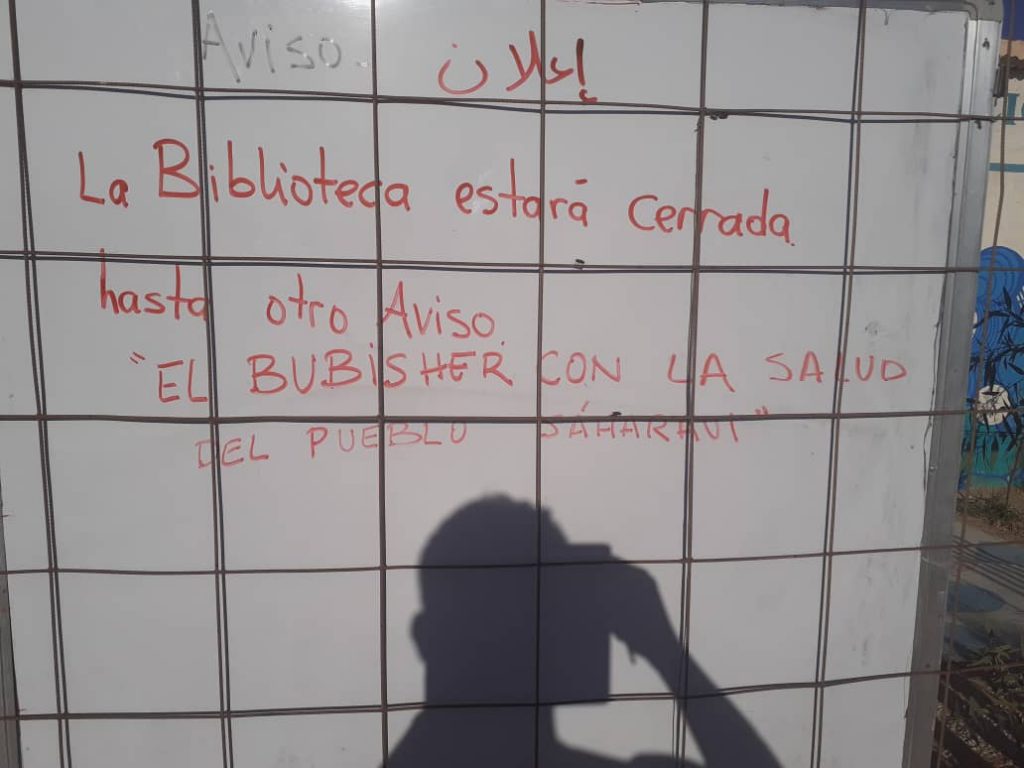 Aviso. إعلان
La Biblioteca estará cerrada.
hasta otro Aviso.
"EL BUBiSHER CON LA SALUD
DEL PUEBLO SÁHARAUI"